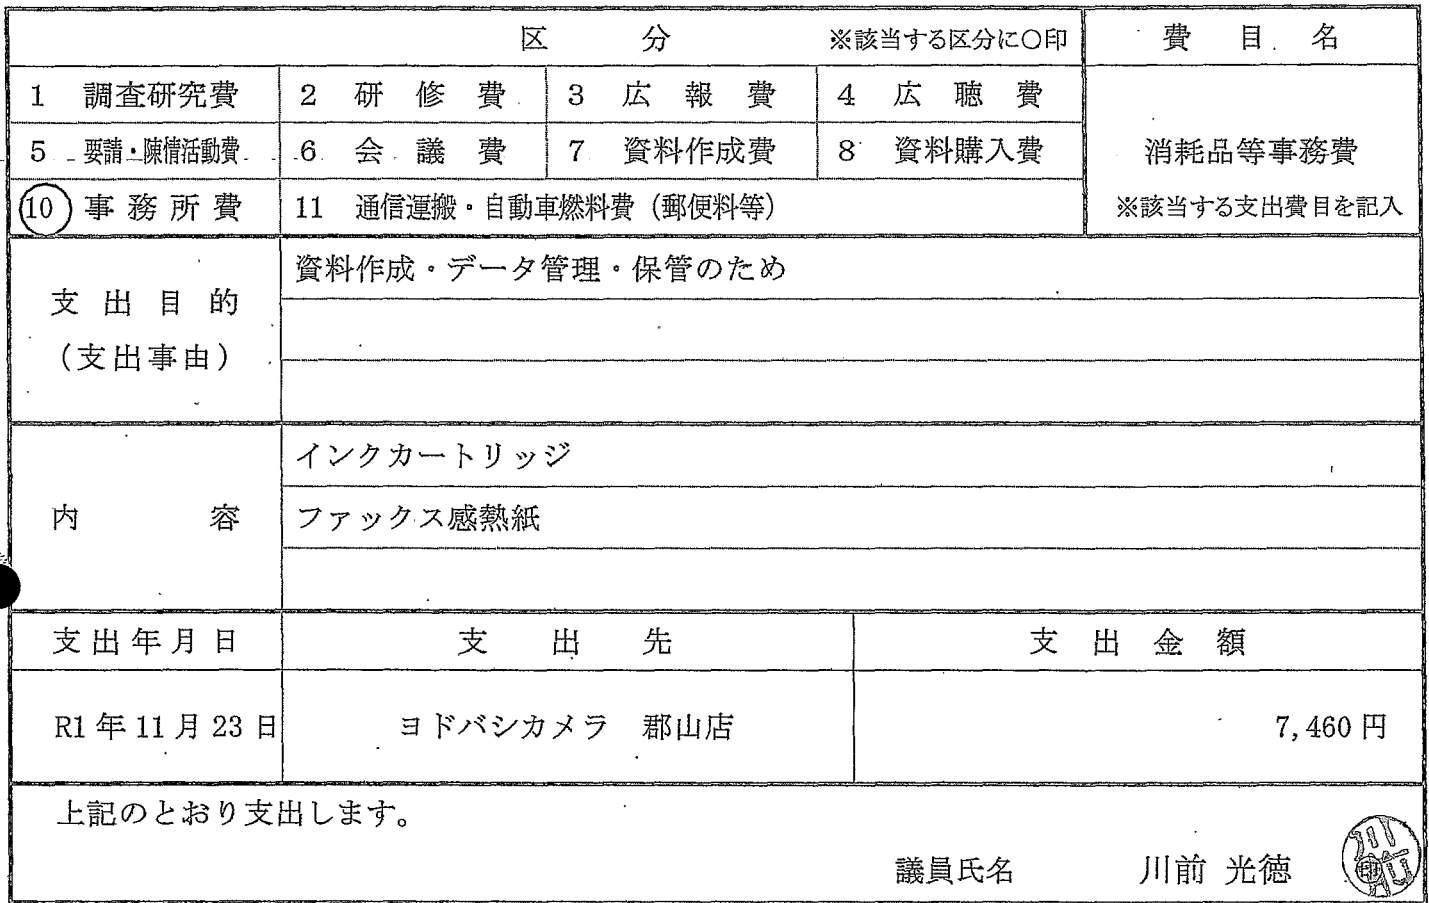 区 分 ※該当する区分に○印 費 目 名
1 調査研究費 2 研 修 費 3 広 報 費 4 広 聴 費
5 要請・陳情活動費 6 会 議 費 7 資料作成費 8 資料購入費 消耗品等事務費
10 事務所費 11 通信運搬・自動車燃料費(郵便料等) ※該当する支出費目を記入
支出目的
(支出事由)
資料作成・データ管理・保管のため
内 容
インクカートリッジ
ファックス感熱紙
支出年月日 支 出 先 支 出 金 額
R1年11月23日 ヨドバシカメラ 郡山店 7,460円
上記のとおり支出します。
議員氏名 川前 光徳 印
川前